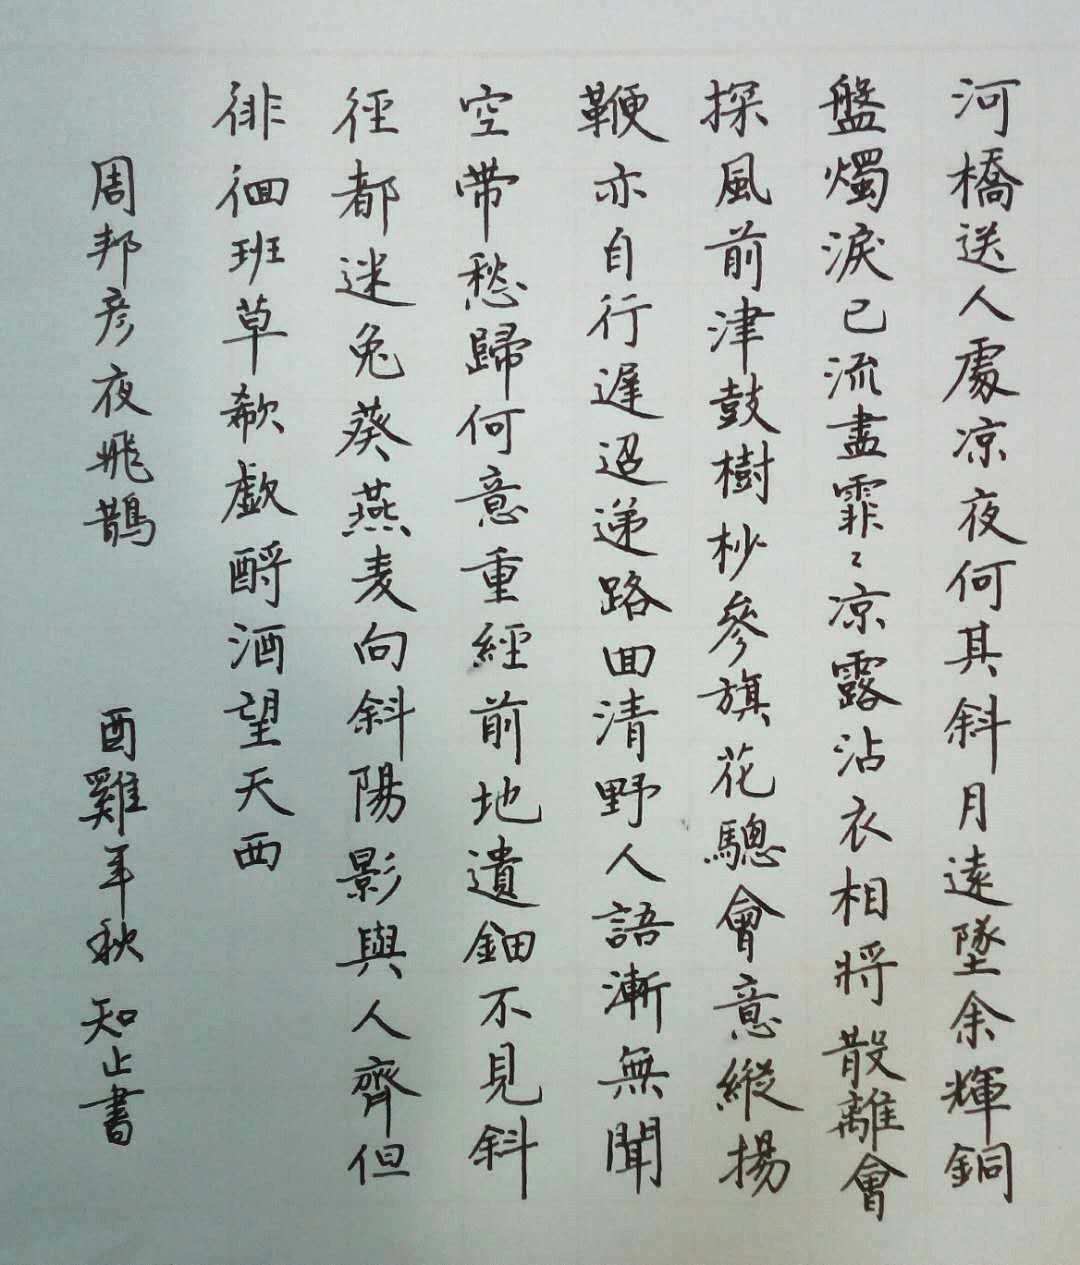 河橋送人處凉夜何其斜月遠墜余輝銅
盤燭淚已流盡霏〻凉露沾衣相將散離會
探風前津鼓樹杪參旗花驄會意縱揚
鞭亦自行遲迢递路囬清野人語漸無聞
空帶愁歸何意重經前地遺鈿不見斜
徑都迷兔葵燕麦向斜陽影與人齊但
徘徊班草欷歔酹酒望天西
周邦彦夜飛鵲
酉雞年秋知止書